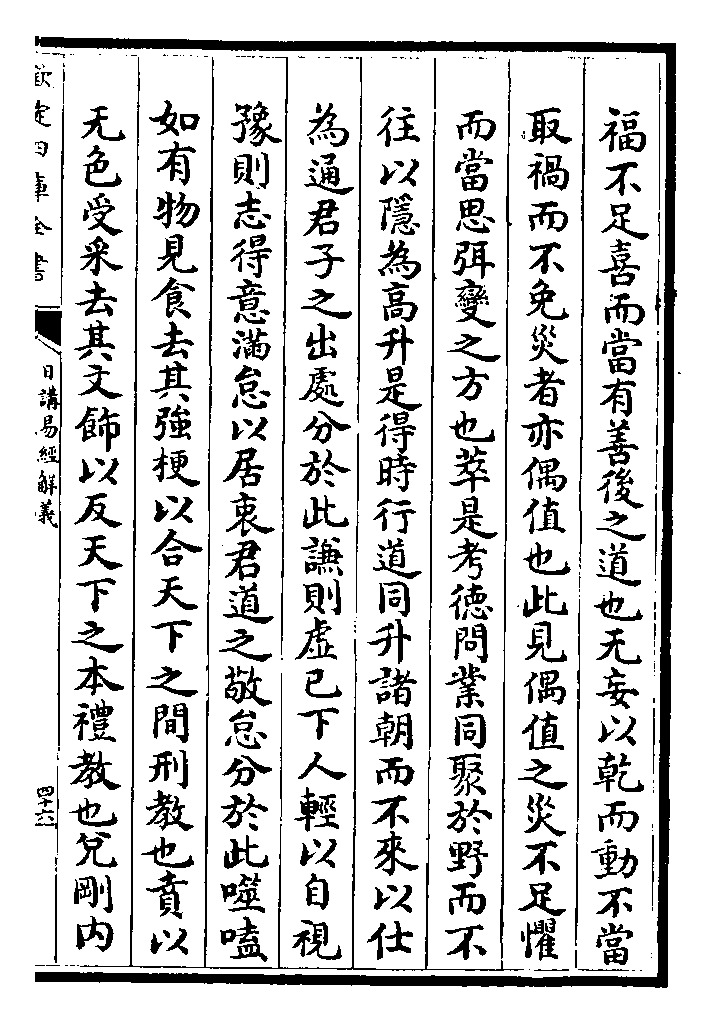 福不足喜而當有善後之道也无妄以乾而動不當
取禍而不免災者亦偶值也此見偶值之災不足懼
而當思弭變之方也萃是考德問業同聚於野而不
往以隱為高升是得時行道同升諸朝而不來以仕
為通君子之出處分於此謙則虛已下人輕以自視
豫則志得意滿怠以居衷君道之敬怠分於此噬嗑
如有物見食去其強梗以合天下之間刑教也賁以
无色受采去其文飾以反天下之本禮教也兌剛内
欽定四庫全書
日講易經解義
四十六